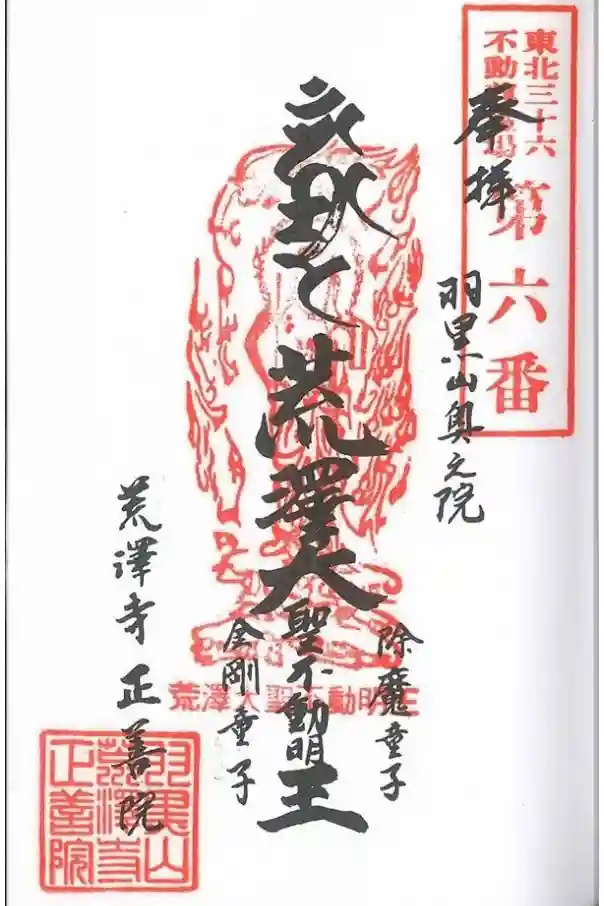 東北三十六
不動尊霊場
第六番
奉拝
羽黒山奥之院
荒澤大聖不動明王
除魔童子
金剛童子
荒澤大聖不動明王
荒澤寺 正善院
羽黒山
荒澤寺
正善院